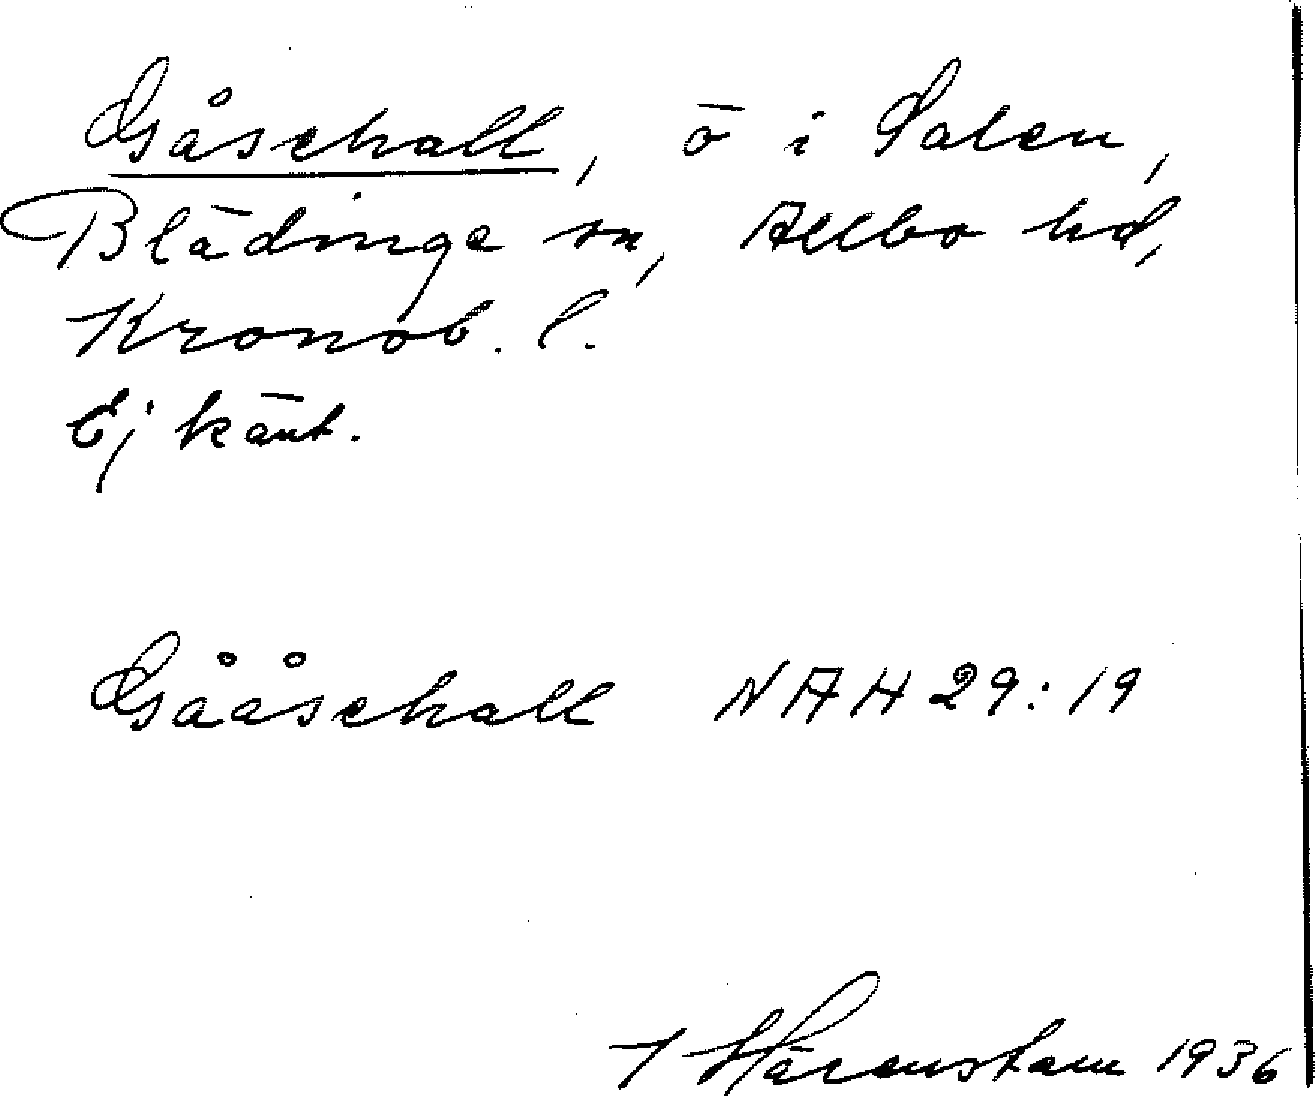 Gåsehall, ö i Salen,
Blädinge sn, Allbo hd,
Kronob. l.
Ej känt.
Gååsehall NAH 29:19
I Härenstam 1936